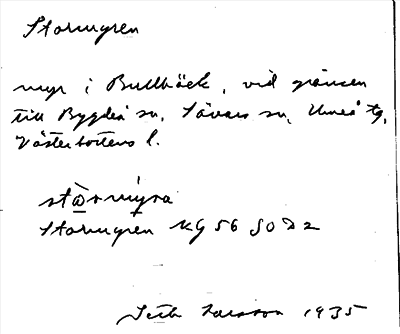 Stormyren
myr i Bullbäck, vid gränsen
till Bygdeå sn, Sävars sn, Umeå tg,
Västerbottens l.
stormyra
Stormyren KG 56 SO D2
Seth Larsson 1935